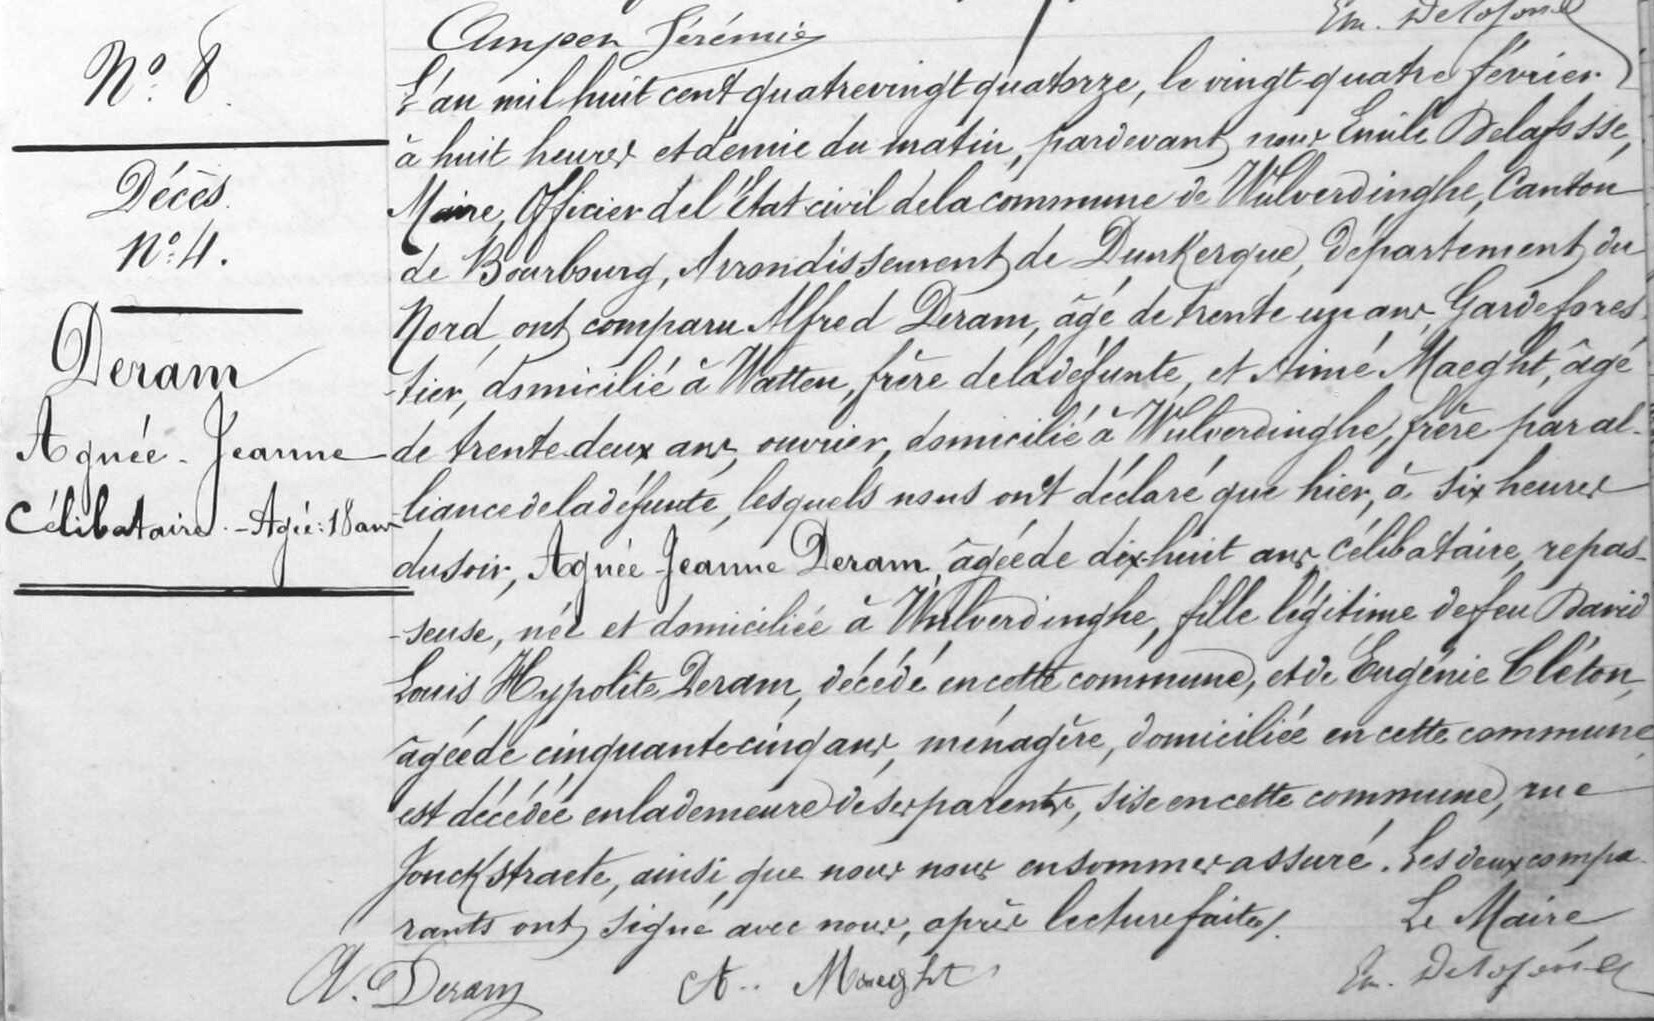 Ampen Jérémie
Em. Delafosse
N° 8.
Décès.
N° 4.
Deram
Agnée - Jeanne
Célibataire. - Agée: 18 ans
L'an mil huit cent quatrevingt quatorze, le vingt-quatre février
à huit heures et demie du matin, pardevant nous Emile Delafosse,
Maire, Officier de l'Etat-civil de la commune de Wulverdinghe, Canton
de Bourbourg, Arrondissement de Dunkerque, département du
Nord, ont comparu Alfred Deram, âgé de trente un ans, Garde fores-
-tier, domicilié à Watten, frère de la défunte, et Aimé Maeght, âgé
de trente-deux ans, ouvrier, domicilié à Wulverdinghe, frère par al-
-liance de la défunte, lesquels nous ont déclaré que hier, à six heures
du soir, Agnée Jeanne Deram, âgée de dix-huit ans, célibataire, repas-
-seuse, née et domiciliée à Wulverdinghe, fille légitime de feu David
Louis Hypolite Deram, décédé en cette commune, et de Eugénie Cléton,
âgée de cinquante-cinq ans, ménagère, domiciliée en cette commune,
est décédée en la demeure de ses parents, sise en cette commune, rue
Jonckstraete, ainsi que nous nous en sommes assuré. Les deux compa-
rants ont signé avec nous, après lecture faite.
Le Maire
A. Deram
A. Maeght
Em. Delafosse